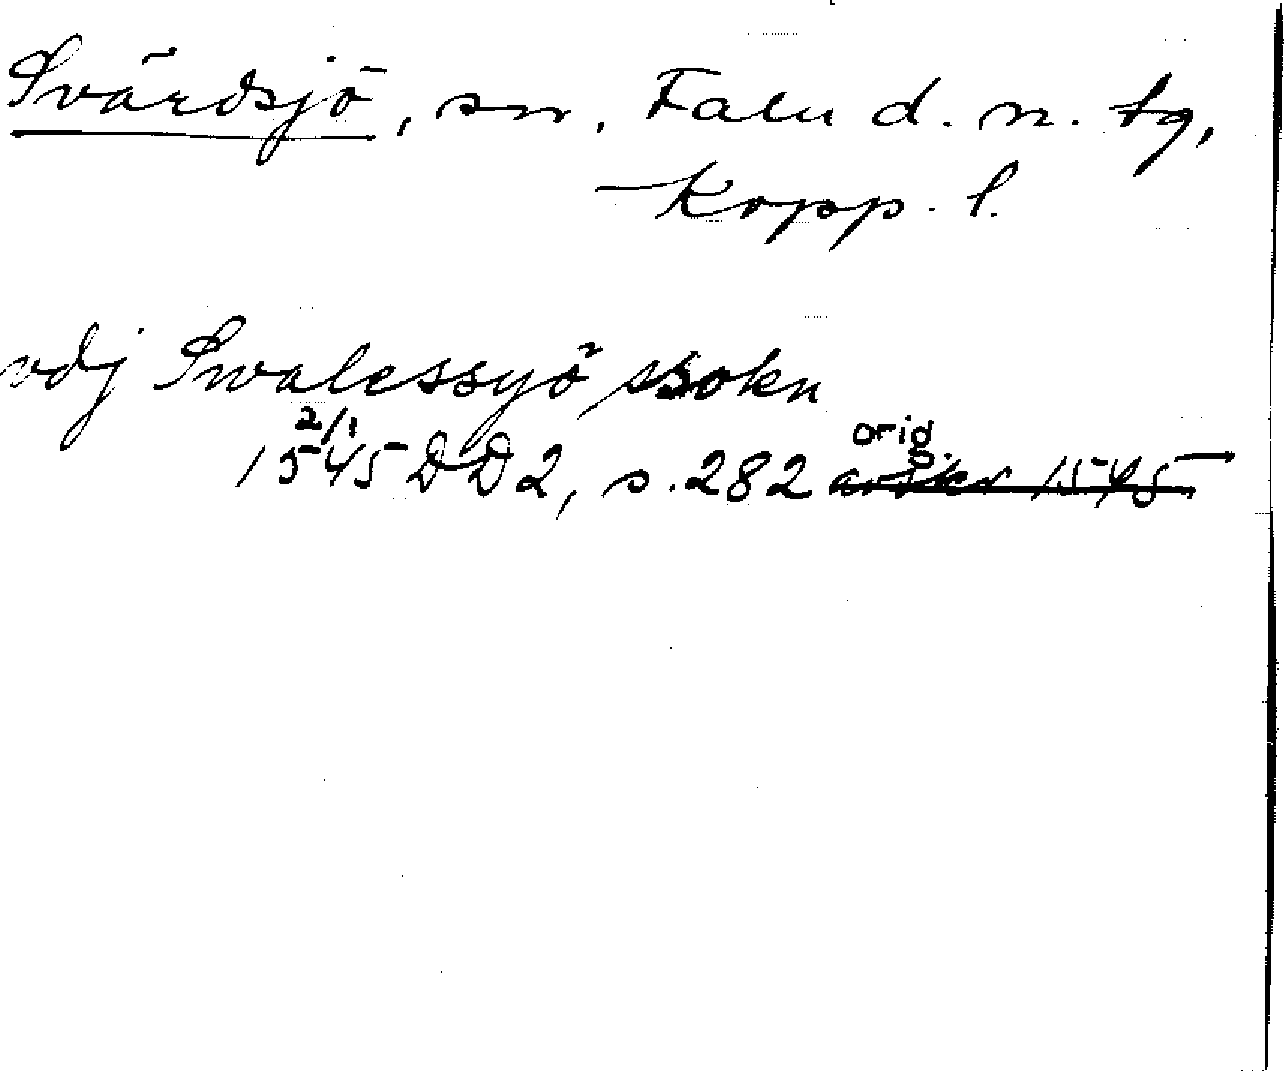 Svärdsjö, sn, Falu d. n. tg,
Kopp. l.
vdj Swalessyö sokn
2/1 orig
1545 DD2, s. 282 avskr 1545